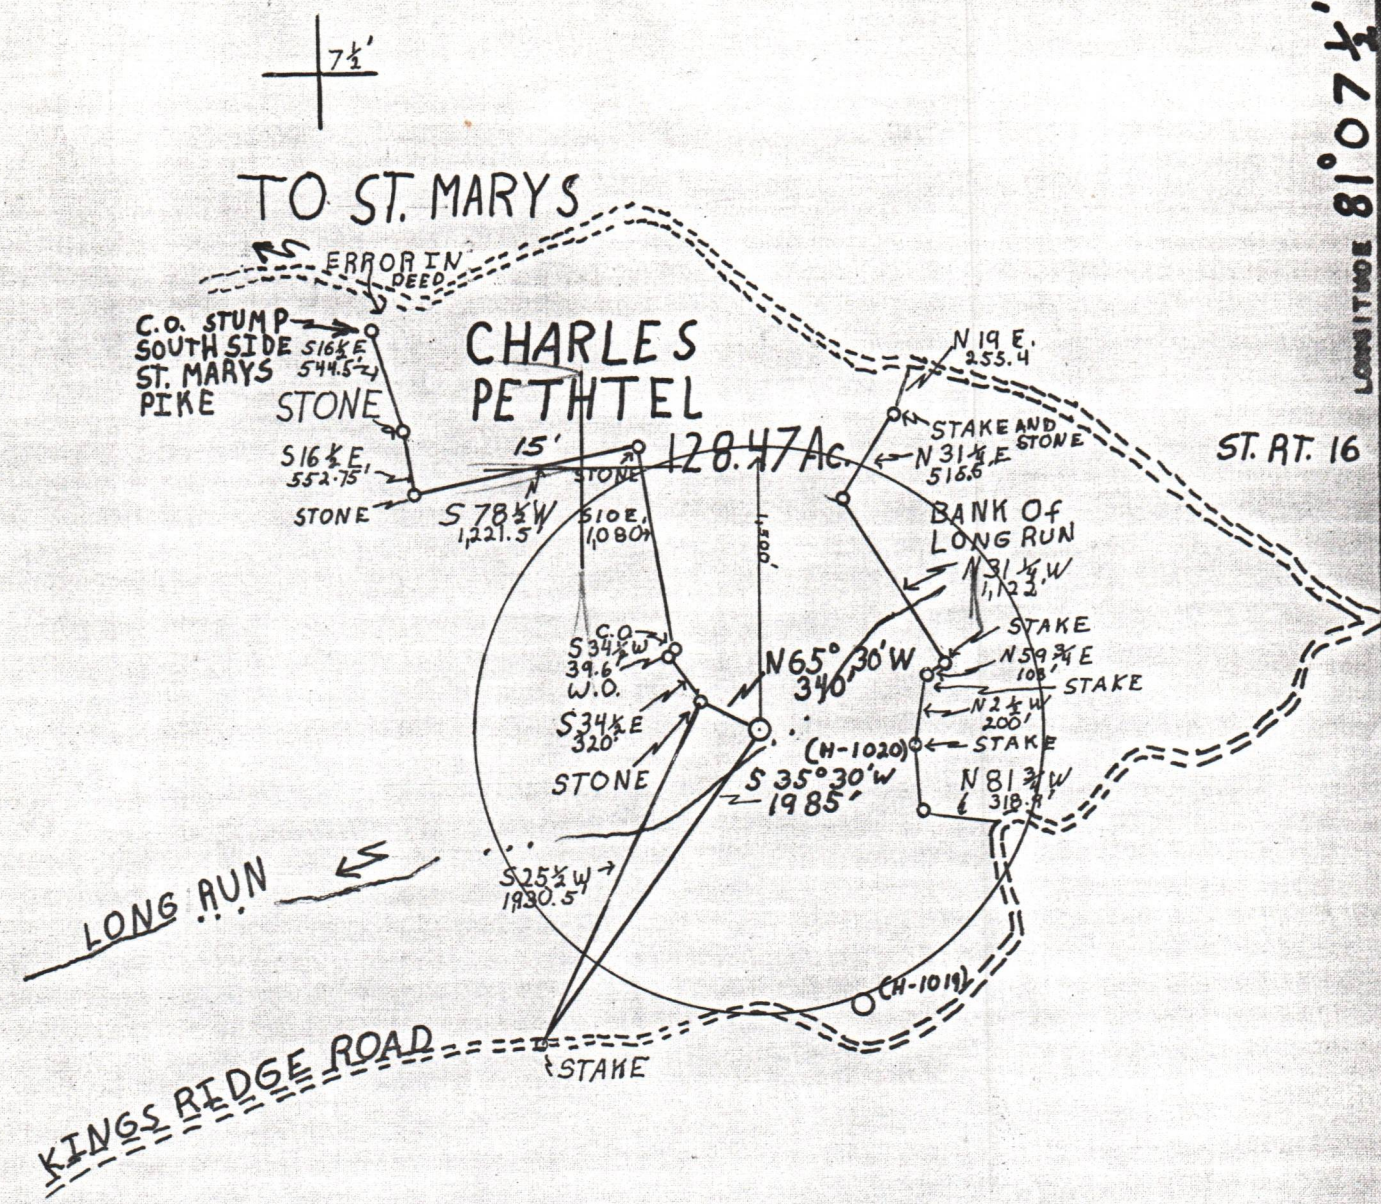 7½'
LONGITUDE 81°07½'
TO ST. MARYS
ERROR IN
DEED
C.O. STUMP
SOUTH SIDE
ST. MARYS
PIKE
S16½E
544.5'
STONE
S16½E
552.75'
STONE
CHARLES
PETHTEL
128.47 Ac.
15'
STONE
S 78½W
1,221.5'
S10E
1,080'
1500'
N 19 E.
255.4
STAKE AND
STONE
N 31¼ E
516.6
ST. RT. 16
BANK OF
LONG RUN
N 31¼ W
1,122'
STAKE
N59¾E
103'
STAKE
N2½W
200'
STAKE
N 81¾ W
C.O.
S34½W
39.6'
W.O.
S34½E
320'
STONE
N65° 30'W
340'
(H-1020)
S 35°30'W
1985'
S25½W
1930.5'
LONG RUN
(H-1019)
KINGS RIDGE ROAD
STAKE